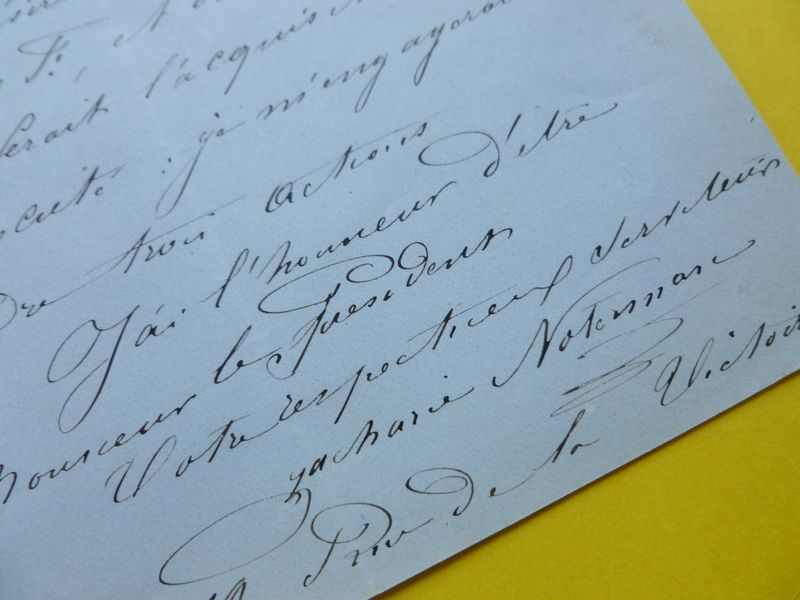 F:, 
serait l'acquis
: je m'engagerai
de trois actions
J'ai l'honneur d'être
Monsieur le Président
Votre respectueux Serviteur
Zacharie Noterman
Rue de la Victoire